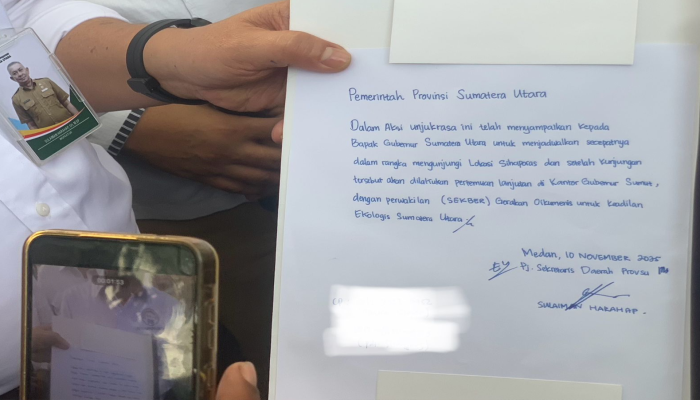 Pemerintah Provinsi Sumatera Utara
Dalam Aksi unjukrasa ini telah menyampaikan kepada
Bapak Gubernur Sumatera Utara untuk menjadwalkan secepatnya
dalam rangka mengunjungi Lokasi Sihaporas dan setelah kunjungan
tersebut akan dilakukan pertemuan lanjutan di Kantor Gubernur Sumut,
dengan perwakilan (SEKBER) Gerakan Oikumenis untuk Keadilan
Ekologis Sumatera Utara
Medan, 10 NOVEMBER 2025
Pj. Sekretaris Daerah Provsu
SULAIMAN HARAHAP.